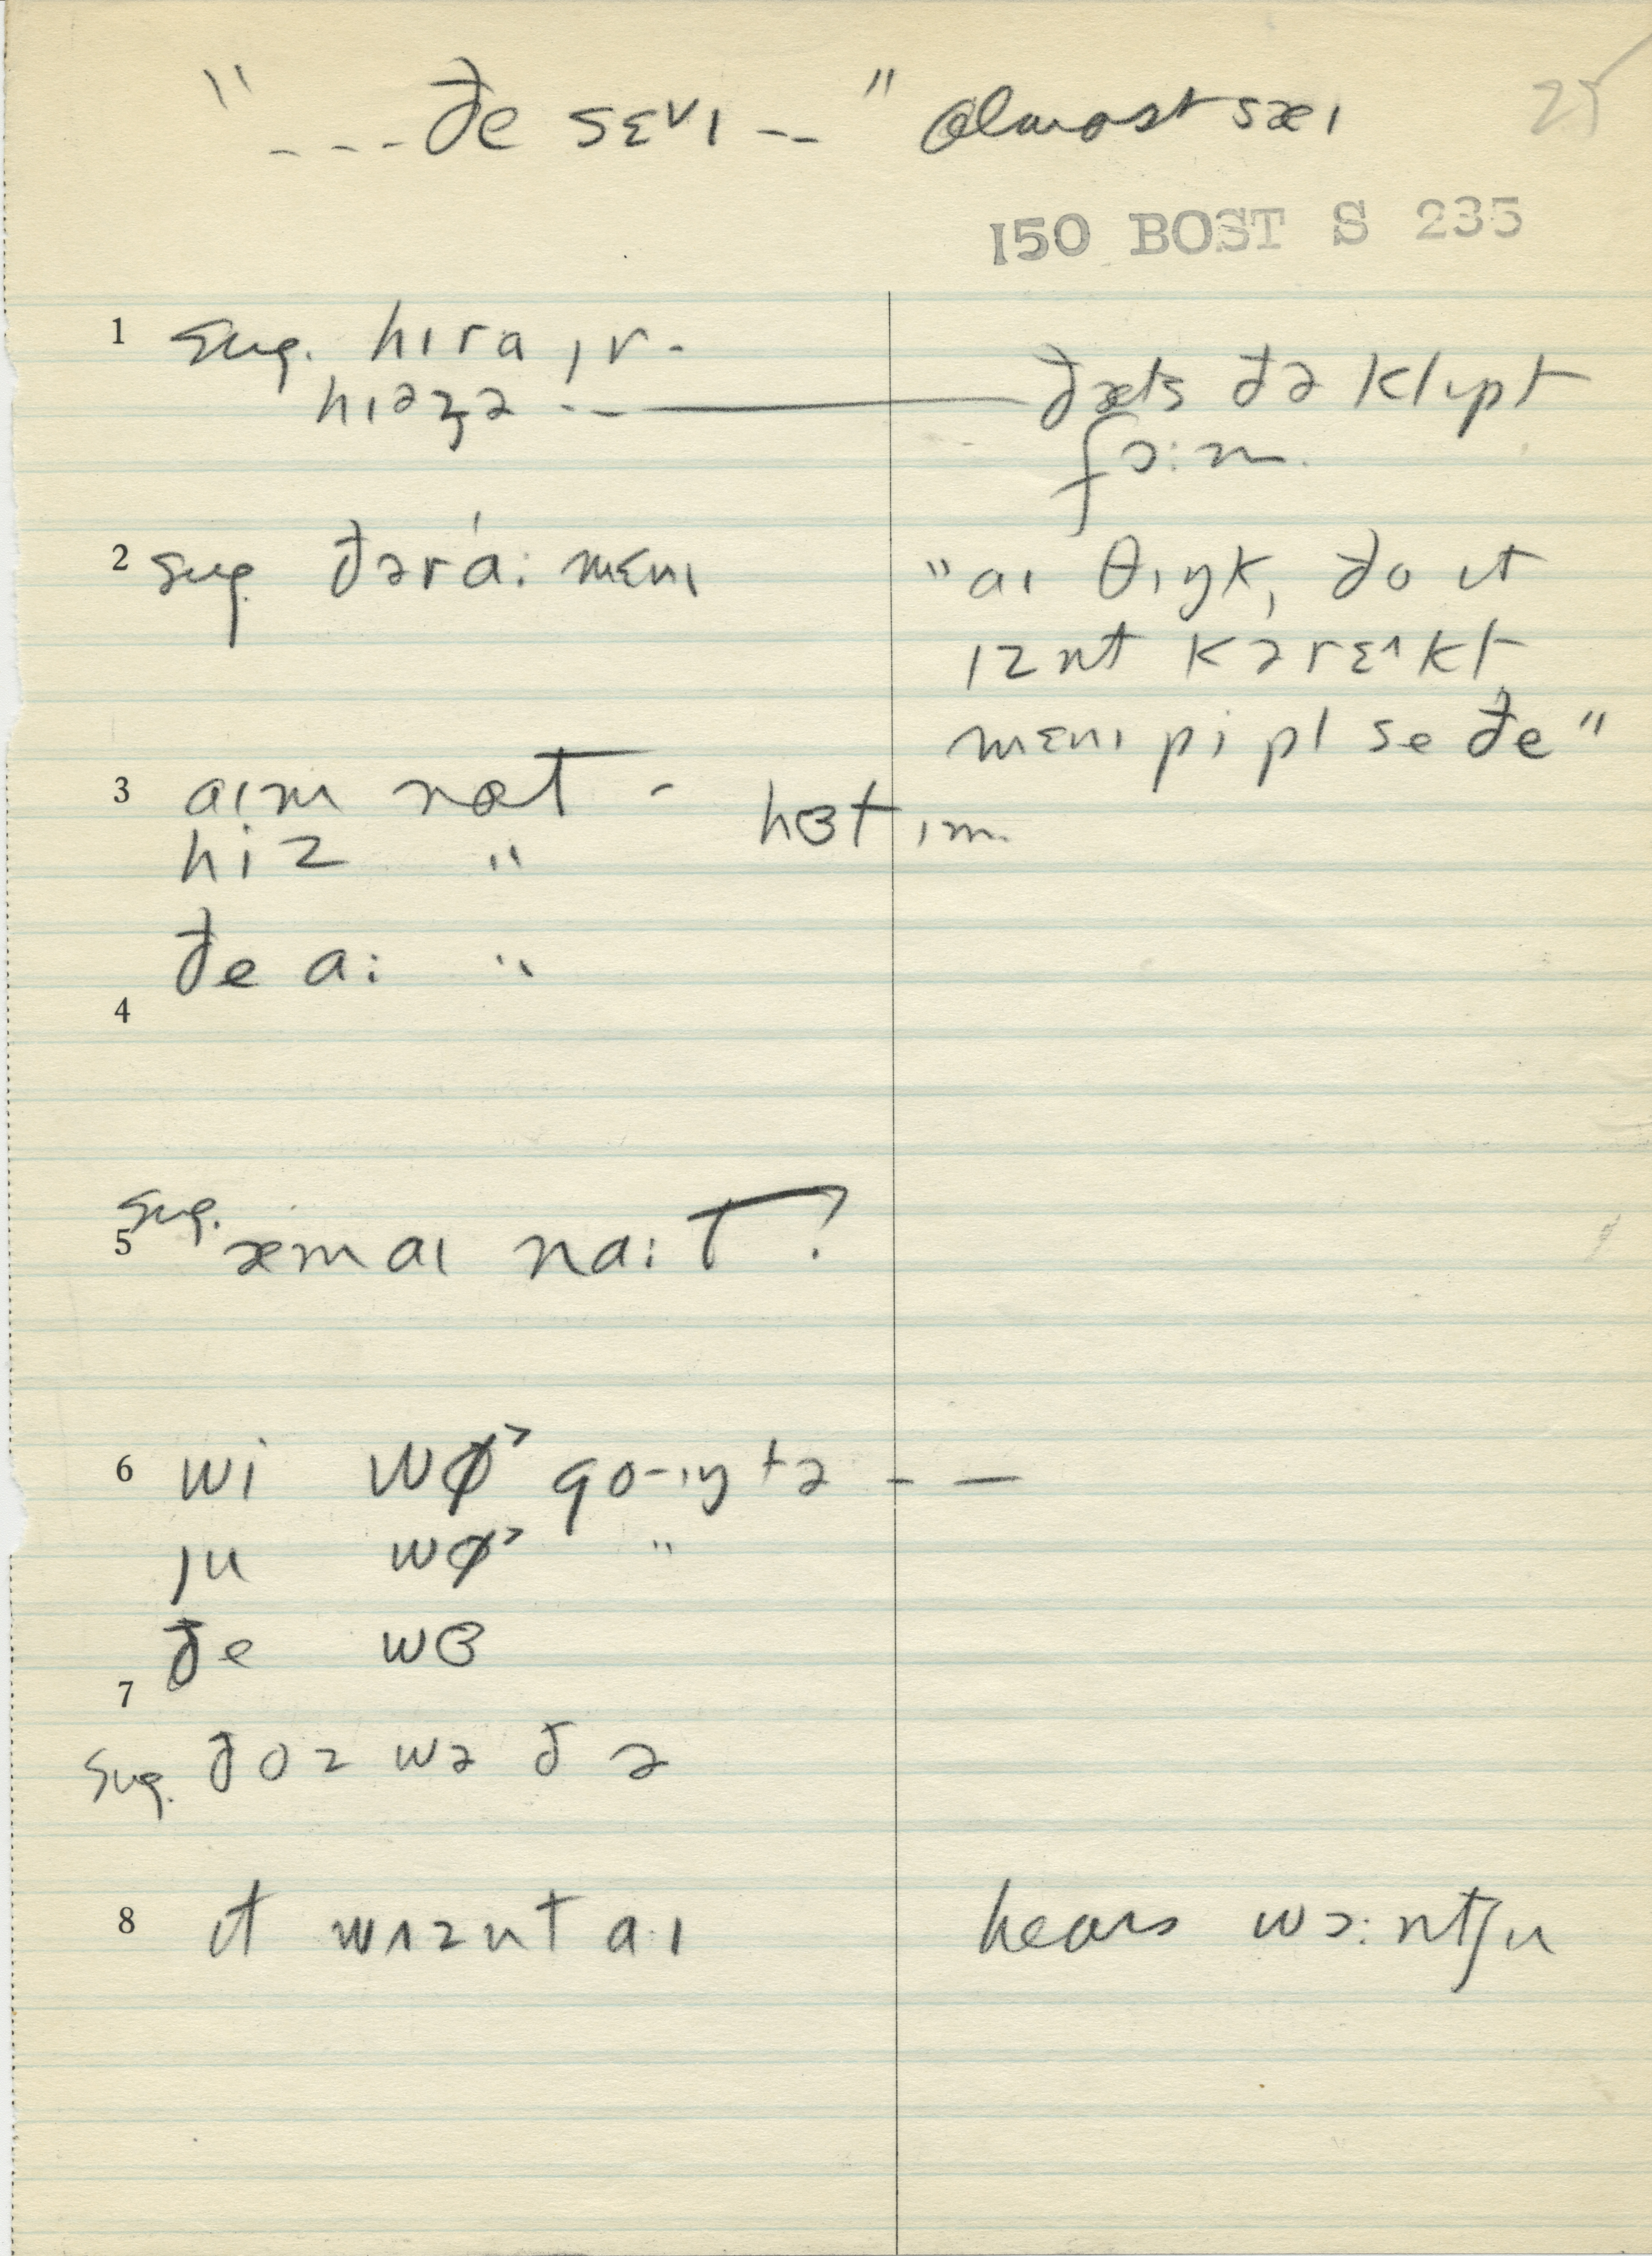 "---- ðe sɛᵛɪ -- " almost sæɪ 25
150 BOST S 235
1 sug. hɪra ɪr -
hɪəzə -- ðæts ðə klɪpt
fɔ:m.
2 sug ðərá: mɛnɪ "aɪ θɪŋk, ðo ɪt
ɪznt kərɛ˄kt,
mɛnɪ pipl se ðe"
3 aɪm nɒt - hɜt ɪm.
hiz "
ðe a: "
4
sug.
5 æm aɪ na:t?
6 wi wø˃ go-ɪŋ tə - —
ju wø˃ "
ðe wɜ
7
sug. ðoz wə ðə
8 ɪt wʌznt a:ɪ hears wɔ:ntʃu